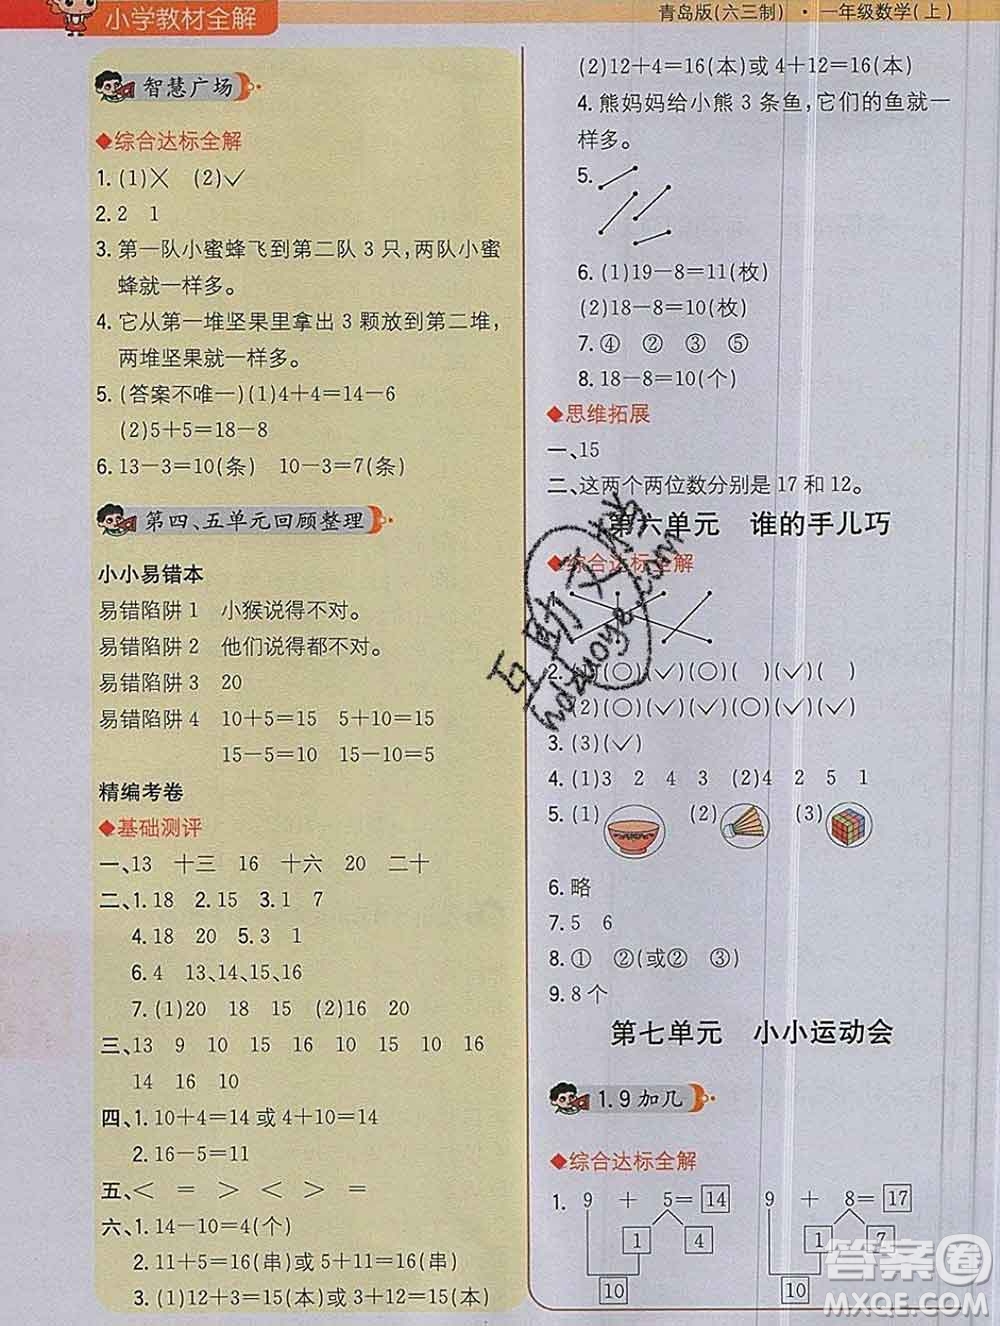 小学教材全解
青岛版(六三制)·一年级数学(上)
智慧广场
◆综合达标全解
1. (1)✕ (2)✓
2. 2 1
3. 第一队小蜜蜂飞到第二队 3 只,两队小蜜
蜂就一样多。
4. 它从第一堆坚果里拿出 3 颗放到第二堆,
两堆坚果就一样多。
5. (答案不唯一)(1)4+4=14-6
(2)5+5=18-8
6. 13-3=10(条) 10-3=7(条)
第四、五单元回顾整理
小小易错本
易错陷阱 1 小猴说得不对。
易错陷阱 2 他们说得都不对。
易错陷阱 3 20
易错陷阱 4 10+5=15 5+10=15
15-5=10 15-10=5
精编考卷
◆基础测评
一、13 十三 16 十六 20 二十
二、1. 18 2. 15 3. 1 7
4. 18 20 5. 3 1
6. 4 13、14、15、16
7. (1)20 18 15 (2)16 10
三、13 9 10 15 16 10 10 16
14 16 10
四、1. 10+4=14 或 4+10=14
2. 16-5=11
五、< = > < > < =
六、1. 14-10=4(个)
2. 11+5=16(串)或 5+11=16(串)
3. (1)12+3=15(本)或 3+12=15(本)
(2)12+4=16(本)或 4+12=16(本)
4. 熊妈妈给小熊 3 条鱼,它们的鱼就一
样多。
5.
6. (1)19-8=11(枚)
(2)18-8=10(枚)
7. ④ ② ③ ⑤
8. 18-8=10(个)
◆思维拓展
一、15
二、这两个两位数分别是 17 和 12。
第六单元 谁的手儿巧
◆综合达标全解
2. (○)(✓)(○)( )(✓)( )
(2)(○)(✓)(✓)(○)(✓)(✓)
3. (3)(✓)
4. (1)3 2 4 3 (2)4 2 5 1
5. (1) (2) (3)
6. 略
7. 5 6
8. ① ②(或② ③)
9. 8 个
第七单元 小小运动会
1. 9 加几
◆综合达标全解
1. 9 + 5=14 9 + 8=17
1 4 1 7
10 10
互助文档
hdzuoye.com
答案圈
MXQE.COM